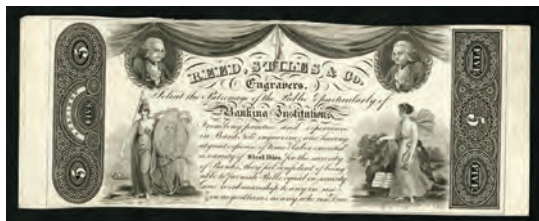 REED, STILES & Co.
Engravers.
Solicit the Patronage of the Public & particularly of
Banking Institutions.
From long practice and experience
in Bank Note engraving, and having
at great expense of time & labor executed
a variety of Steel Dies, for the security
of Banks, they feel competent of being
able to furnish Bills, equal in security
and workmanship to any in use
on as good terms as any who
5
FIVE
5
FIVE
5
FIVE